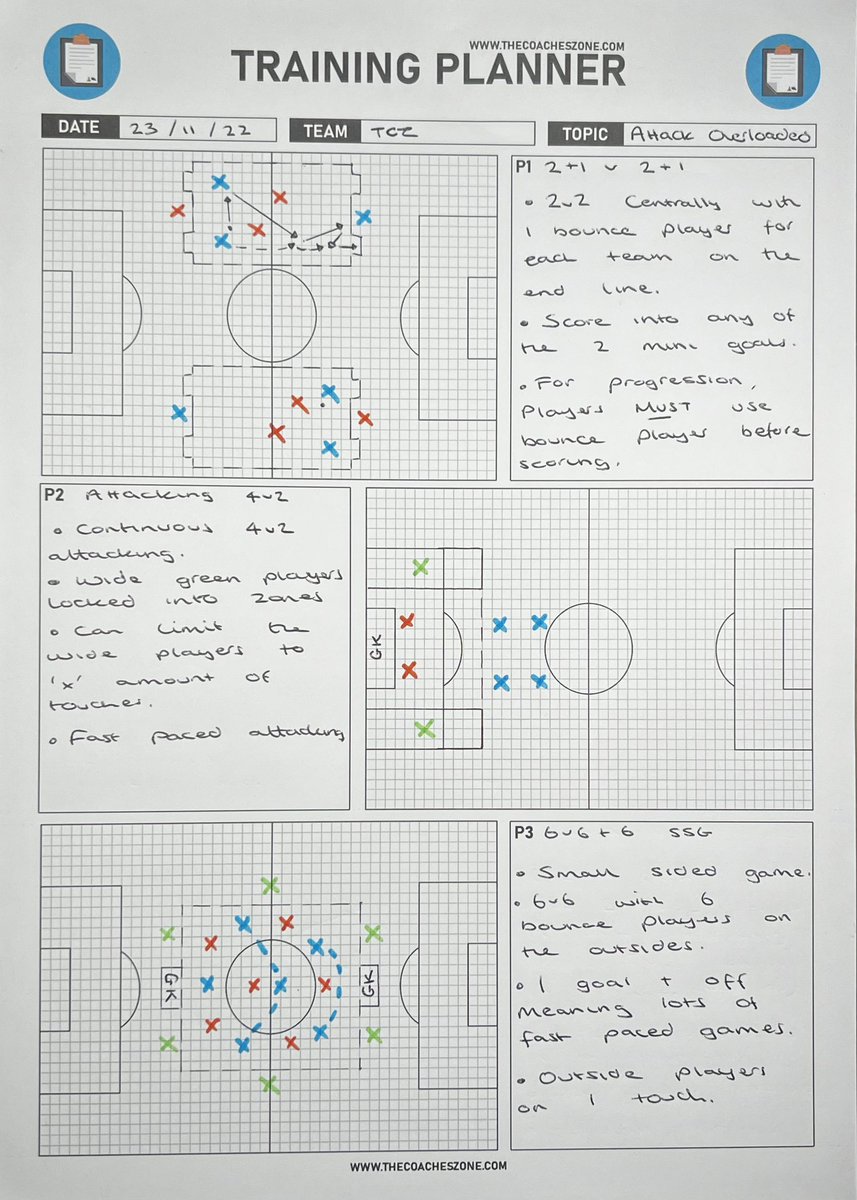 WWW.THECOACHESZONE.COM
TRAINING PLANNER
DATE 23/11/22 TEAM TCZ TOPIC Attack Overloaded
P1 2+1 v 2+1
• 2v2 Centrally with
1 bounce player for
each team on the
end line.
• Score into any of
the 2 mini goals.
• For progression,
players MUST use
bounce player before
scoring.
P2 Attacking 4v2
• Continuous 4v2
attacking.
• Wide green players
locked into zones
• Can limit the
wide players to
'x' amount of
touches.
• Fast paced attacking
GK
P3 6v6+6 SSG
• Small sided game.
• 6v6 with 6
bounce players on
the outsides.
• 1 goal + off
meaning lots of
fast paced games.
• Outside players
on 1 touch.
GK
GK
WWW.THECOACHESZONE.COM